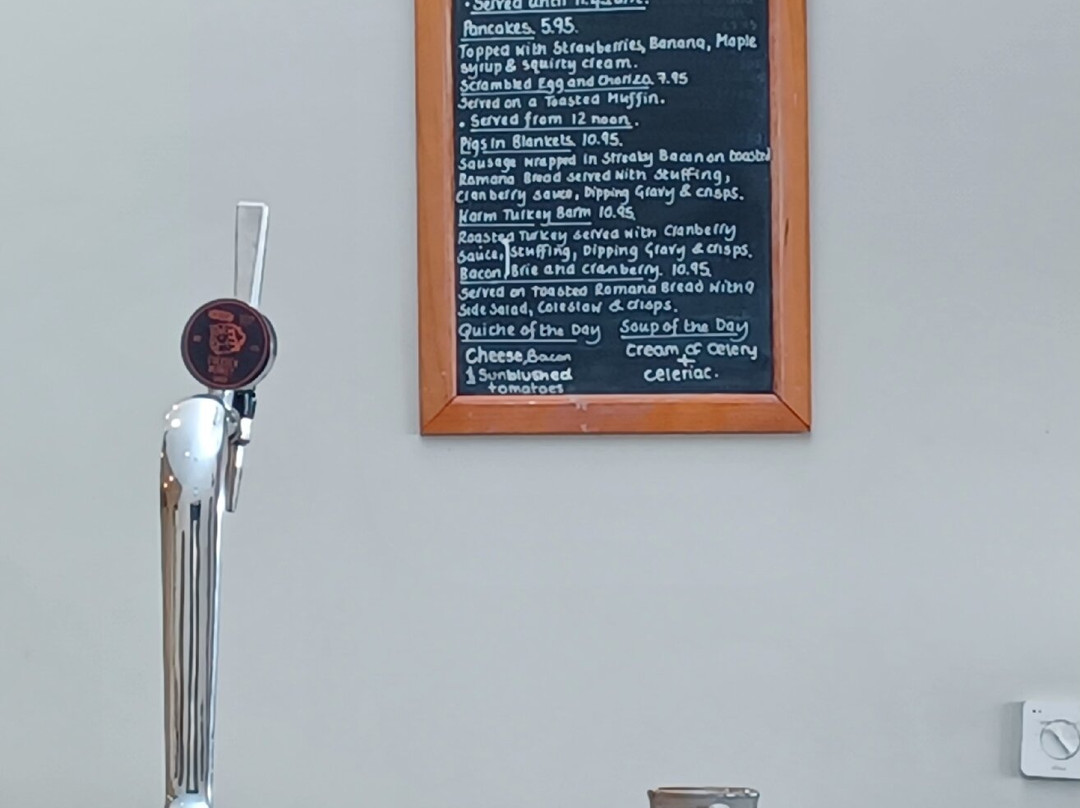 • Served until 11.30am.
Pancakes 5.95.
Topped with Strawberries, Banana, Maple
syrup & squirty cream.
Scrambled Egg and Chorizo 7.95
Served on a Toasted Muffin.
• Served from 12 noon.
Pigs In Blankets 10.95.
Sausage wrapped in Streaky Bacon on toasted
Romana Bread served with Stuffing,
Cranberry sauce, Dipping Gravy & crisps.
Warm Turkey Barm 10.95
Roasted Turkey served with Cranberry
Sauce, Stuffing, Dipping Gravy & crisps.
Bacon, Brie and Cranberry. 10.95
Served on Toasted Romana Bread with a
Side Salad, Coleslaw & crisps.
Quiche of the Day
Cheese, Bacon
& Sunblushed
tomatoes
Soup of the Day
Cream of Celery
+
celeriac.